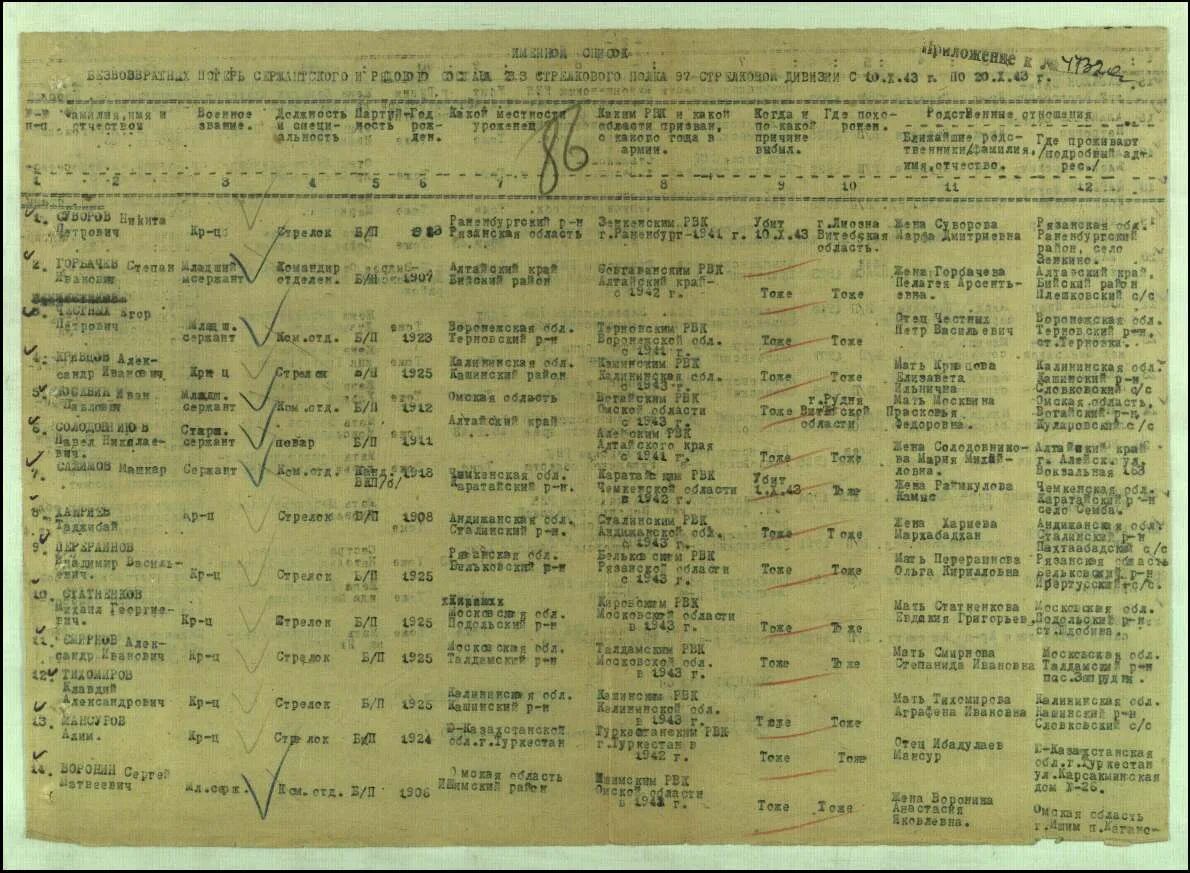 ИМЕННОЙ СПИСОК
Приложение к №
БЕЗВОЗВРАТНЫХ ПОТЕРЬ СЕРЖАНТСКОГО И РЯДОВОГО СОСТАВА СТРЕЛКОВОГО ПОЛКА 97 СТРЕЛКОВОЙ ДИВИЗИИ С 10.X.43 г. ПО 20.X.43 г.
Фамилия, имя и отчеством Военное звание. Должность и специальность Партийность Год рожден. Какой местности уроженец Каким РВК и какой области призван, с какого года в армии. Когда и по какой причине выбыл. Где похоронен. Родственные отношения
Ближайшие родственники/фамилия, имя, отчество. Где проживают /подробный адрес/
86
1 2 3 4 5 6 7 8 9 10 11 12
1. СУВОРОВ Никита Петрович Кр-ц Стрелок Б/П Раненбургский р-н Рязанская область РВК г.Раненбург-1941 г. Убит 10.X.43 г.Лиозна Витебская область. Жена Суворова Марфа Дмитриевна Рязанская обл. Раненбургский район, село Зенкино.
2. ГОРБАЧЕВ Степан Иванович Младший сержант Командир отделен. Б/П 1907 Алтайский край Бийский район РВК Алтайский край- с 1942 г. Тоже Тоже Жена Горбачева Пелагея Арсентьевна. Алтаевский край, Бийский район Плешковский с/с
3. ЧЕСТНЫХ Егор Петрович Младш. сержант Ком.отд. Б/П 1923 Воронежская обл. Терновский р-н Терновским РВК Воронежской обл. с 1941 г. Тоже Тоже Отец Честных Петр Васильевич Воронежская обл. Терновский р-н, ст.Терновка.
4. КРИВЦОВ Александр Иванович Кр-ц Стрелок б/П 1925 Калининская обл. Кашинский район Кашинским РВК Калининская обл. с 1943 г. Тоже Тоже Мать Кривцова Елизавета Ильинична Калининская обл. Кашинский р-н Словковский с/с
5. Иван Павлович Младш. сержант Ком.отд. Б/П 1912 Омская область РВК Омской области с 1943 г. Тоже г.Рудня Витебской области Мать Москвина Прасковья Федоровна. Омская область, р-н, с/с
6. СОЛОДОВНИКОВ Павел Николаевич. Старш. сержант повар Б/П 1911 Алтайский край Алейским РВК Алтайского края с 1941 г. Тоже Тоже Жена Солодовникова Мария Михайловна. Алтайский край г. Алейск ул. Вокзальная 168
7. Машкар Сержант Ком.отд. Канд. ВКП/б/ 1918 Чемкенская обл. Каратайский р-н. РВК Чемкенской области с 1942 г. Убит 1.X.43 Тоже Жена Раимкулова Камыс Чемкенская обл. Каратайский р-н село Семба.
8. ХАРИЕВ Таджибай Кр-ц Стрелок Б/П 1908 Андижанская обл. Сталинский р-н. Сталинским РВК Андижанской обл. с 1943 г. Тоже Тоже Жена Хариева Мархабадхан Андижанская обл. Сталинский р-н Пахтаабадский с/с
9. Владимир Васильевич. Кр-ц Стрелок Б/П 1925 Рязанская обл. Бельковский р-н Бельковским РВК Рязанской области с 1943 г. Тоже Тоже Мать Ольга Кирилловна Рязанская область Бельковский р-н с/с.
10. СТАТНЕНКОВ Михаил Георгиевич. Кр-ц Стрелок Б/П 1925 Московская обл. Подольский р-н Кировским РВК Московской области в 1943 г. Тоже Тоже Мать Статненкова Евдокия Григорьев, Московская обл. Подольский р-н
11. СМИРНОВ Александр Иванович Кр-ц Стрелок Б/П 1925 Московская обл. Талдамский р-н Талдамским РВК Московской обл. в 1943 г. Тоже Тоже Мать Смирнова Степанида Ивановна Московская обл. Талдамский р-н пос.Запрудня.
12. ТИХОМИРОВ Клавдий Александрович Кр-ц Стрелок Б/П 1925 Калининская обл. Кашинский р-н Кашинским РВК Калининской обл. в 1943 г. Тоже Тоже Мать Тихомирова Аграфена Ивановна Калининская обл. Кашинский р-н Словковский с/с
13. МАНСУРОВ Алим. Кр-ц Стрелок Б/П 1924 Ю-Казахстанской обл.г.Туркестан Туркестанским РВК г.Туркестан в 1942 г. Тоже Тоже Отец Ибадулаев Мансур Ю-Казахстанская обл.г.Туркестан ул.Карсакминская дом N-26.
14. ВОРОНИН Сергей Матвеевич Мл.серж. Ком.отд. Б/П 1906 Омская область Ишимский район Ишимским РВК Омской области в 1941 г. Тоже Тоже Жена Воронина Анастасия Яковлевна. Омская область г.Ишим